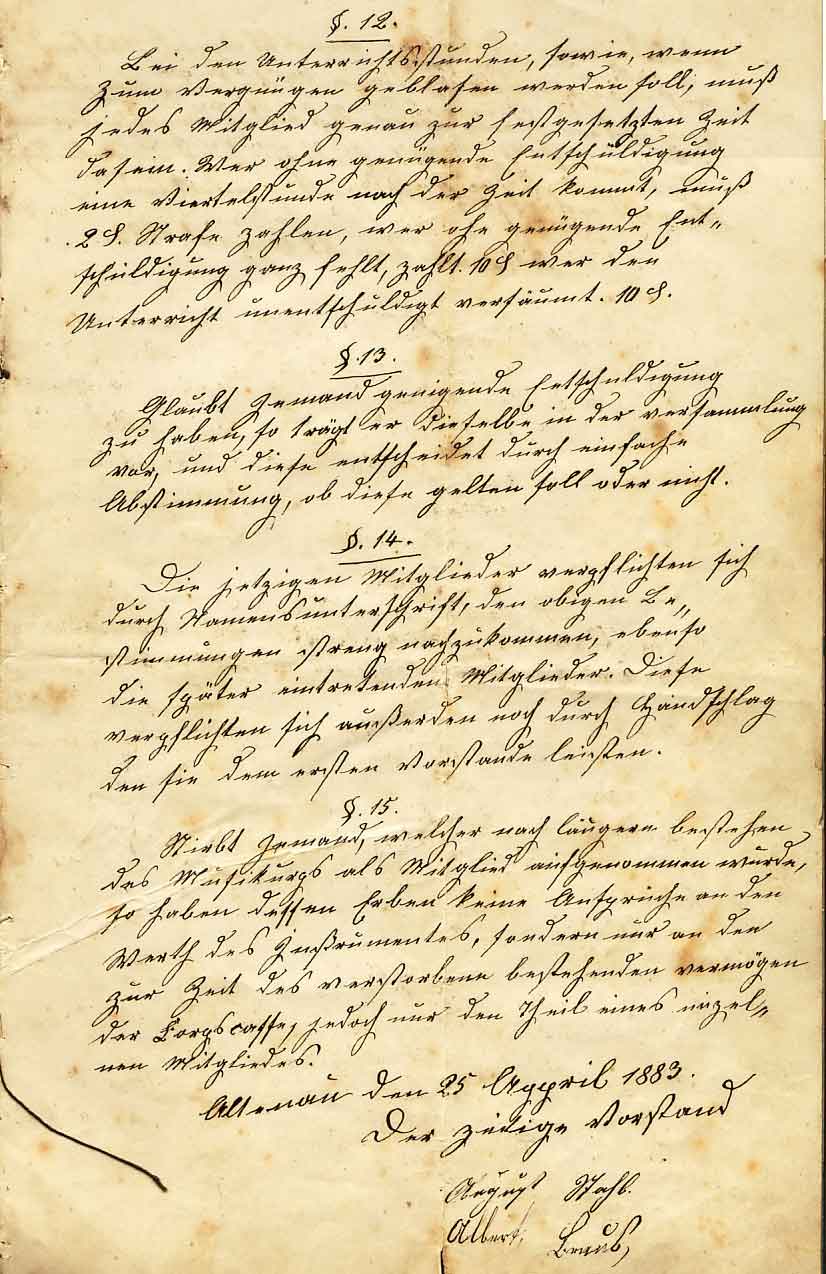 §. 12.
Bei den Unterrichtsstunden, sowie, wenn
zum Vergnügen geblasen werden soll, muß
jedes Mitglied genau zur festgesetzten Zeit
dasein. Wer ohne genügende Entschüldigung
eine Viertelstunde nach der Zeit kommt, muß
2 ₰. Strafe zahlen, wer ohe genügende Ent„
schüldigung ganz fehlt, zahlt. 10 ₰ wer den
Unterricht unentschuldigt versäumt. 10 ₰.
§. 13.
Glaubt Jemand genigende Entschuldigung
zu haben, so trägt er dieselbe in der versammlung
vor, und diese entscheidet durch einfache
Abstimmung, ob diese gelten soll oder nicht.
§. 14.
Die jetzigen Mitglieder verpflichten sich
durch Namensunterschrift, den obigen Be„
stimmungen streng nachzukommen, ebenso
die später eintretenden Mitglieder. Diese
verpflichten sich außerden noch durch Handschlag
den sie dem ersten Vorstande leisten.
§. 15.
Stirbt Jemand, welcher nach längern bestehen
des Musikorps als Mitglied aufgenommen wurde,
so haben dessen Erben keine Ansprüche an den
Werth des Instrumentes, sondern nur an den
zur Zeit des verstorbene bestehenden vermögen
der Corpscasse, jedoch nur den Theil eines einzel„
nen Mitgliedes.
Altenau den 25 Appril 1883.
Der zeitige Vorstand
August Stahl.
Albert